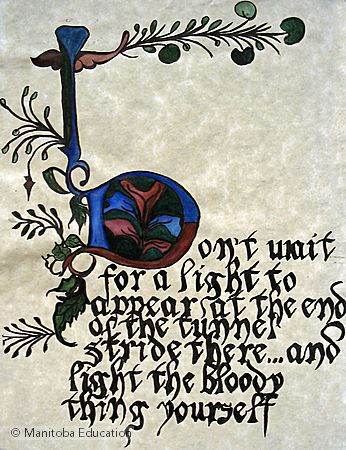 Don't wait
for a light to
appear at the end
of the tunnel
stride there...and
light the bloody
thing yourself
© Manitoba Education